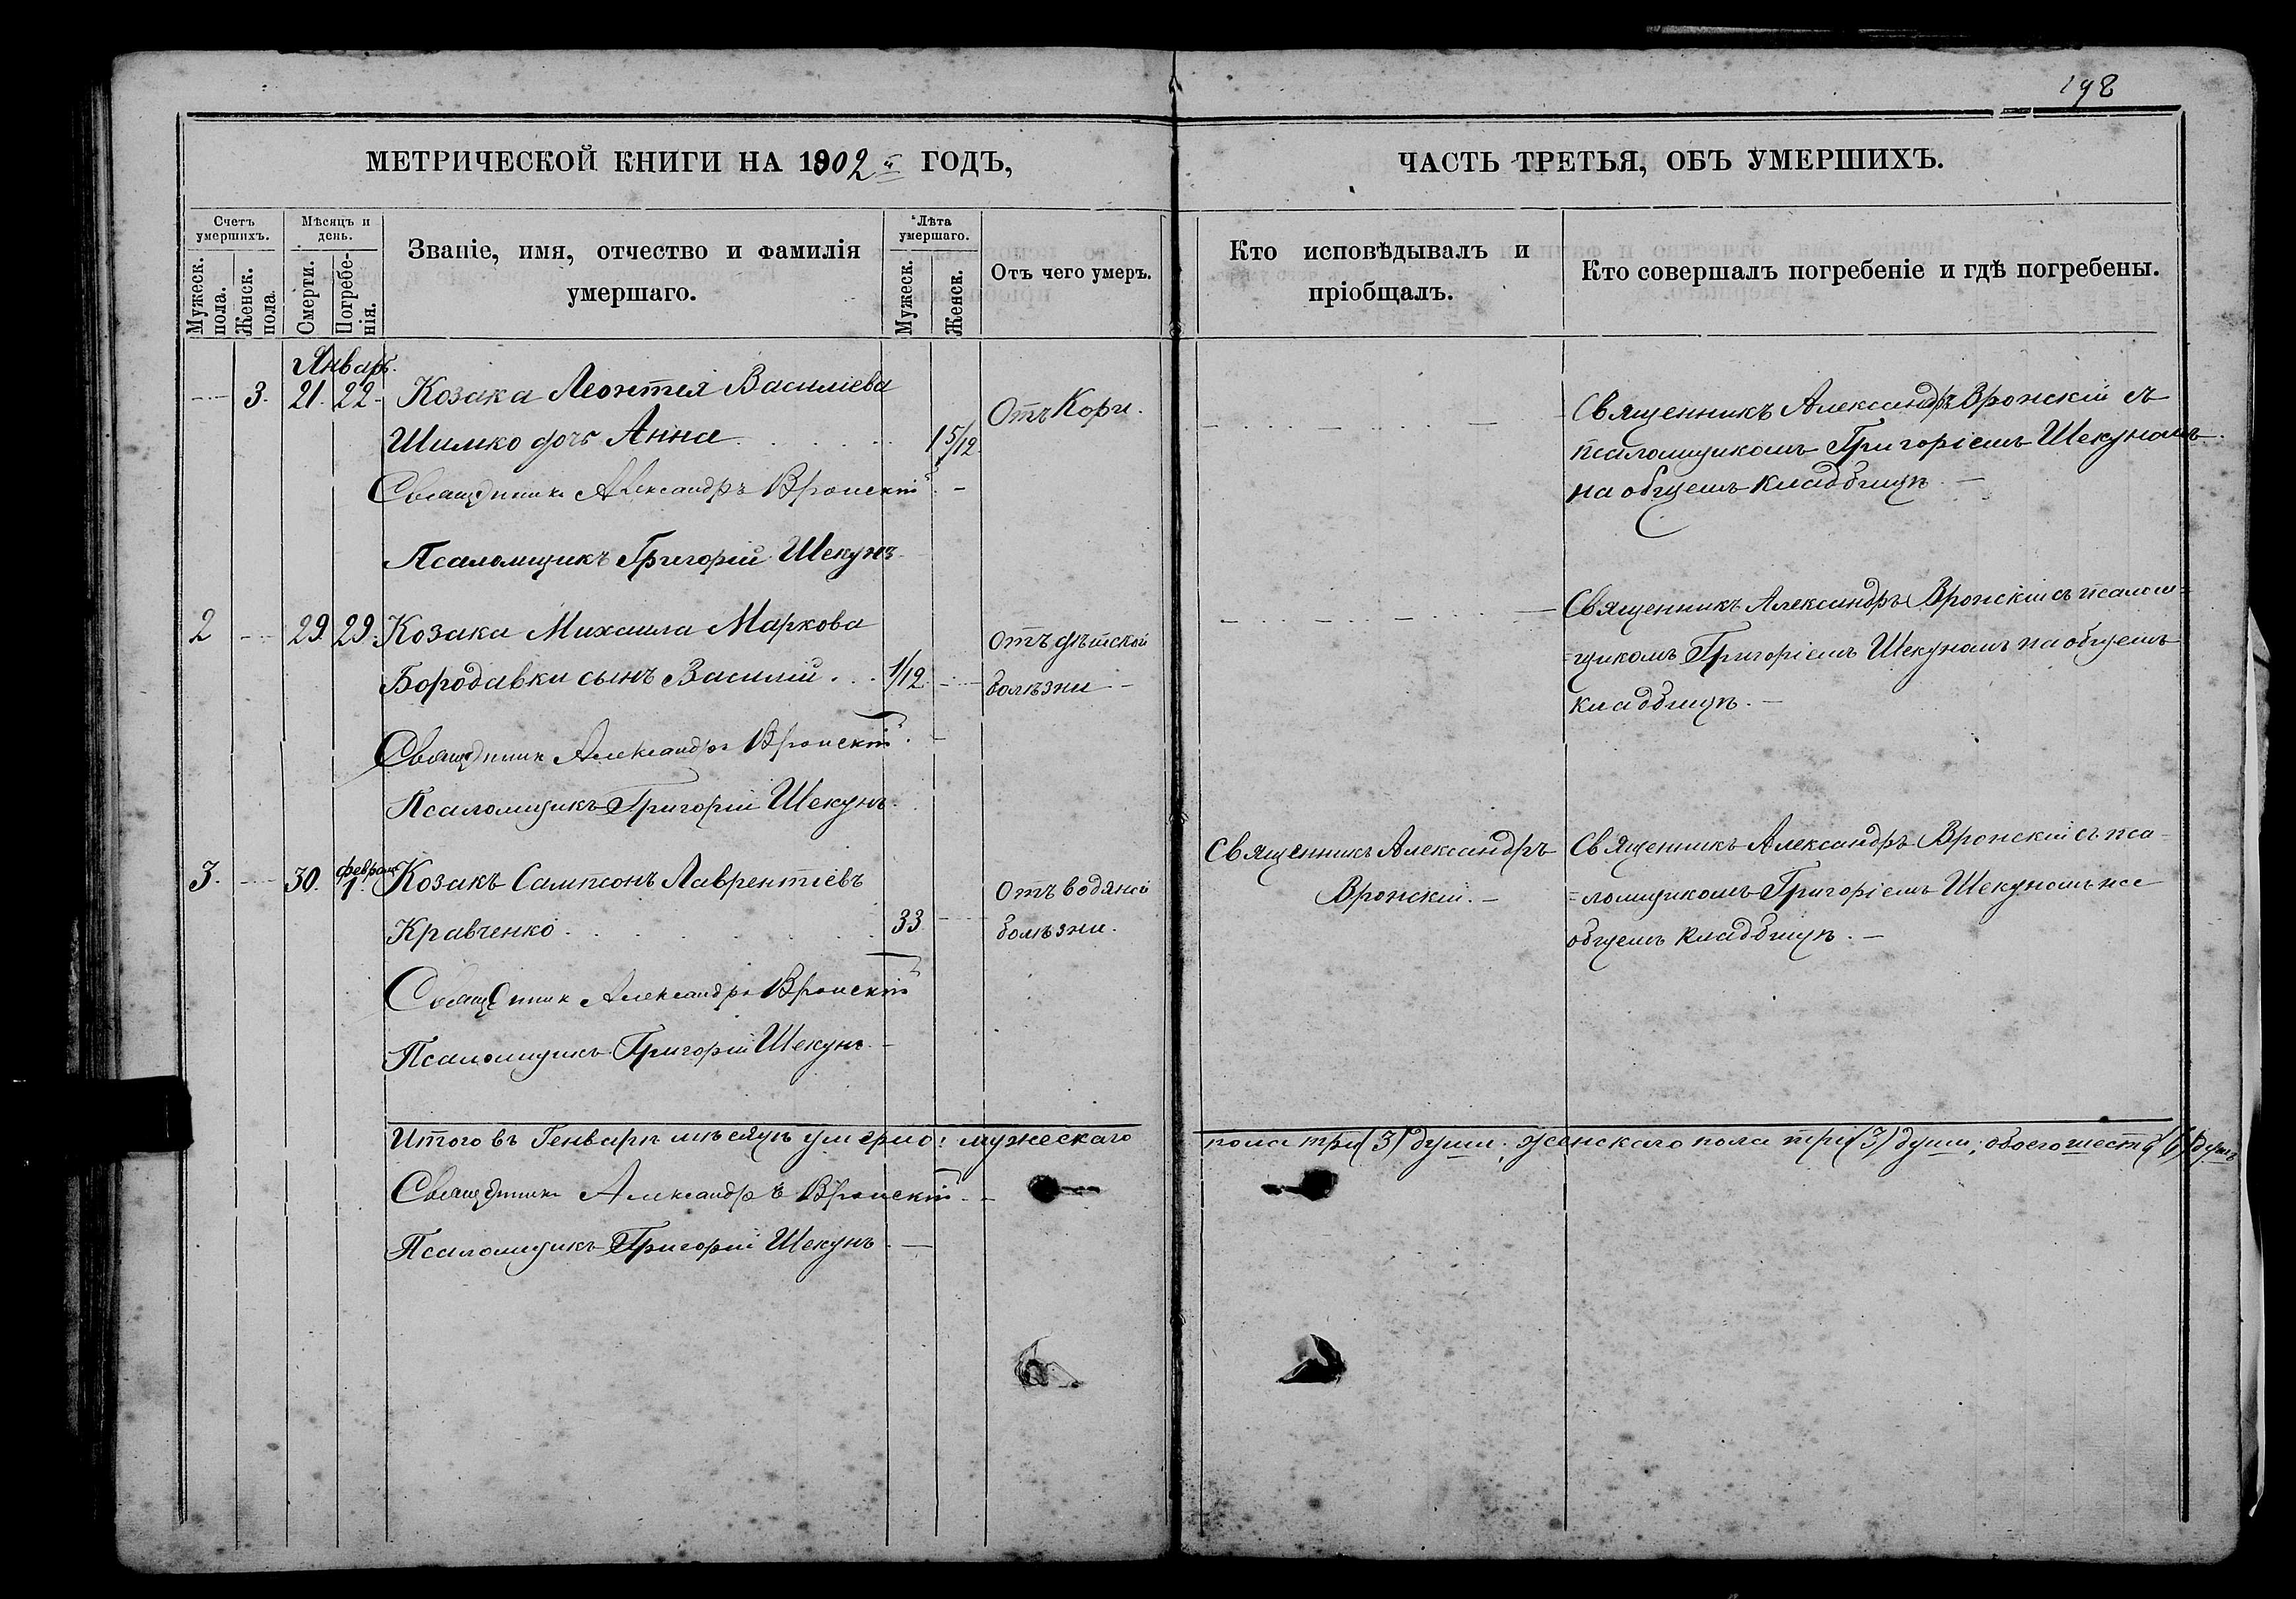 198
МЕТРИЧЕСКОЙ КНИГИ НА 1902й ГОДЪ,
ЧАСТЬ ТРЕТЬЯ, ОБЪ УМЕРШИХЪ.
Счетъ умершихъ.
Мужеск. пола.
Женск. пола.
Мѣсяцъ и день.
Смерти.
Погребенія.
Званіе, имя, отчество и фамилія
умершаго.
Лѣта умершаго.
Мужеск.
Женск.
Отъ чего умеръ.
Кто исповѣдывалъ и
пріобщалъ.
Кто совершалъ погребеніе и гдѣ погребены.
Январь.
3. 21. 22. Козака Леонтія Василіева
Шимко дочь Анна 1 5/12
Отъ Кори.
Священникъ Александръ Вронскій съ
псаломщикомъ Григоріемъ Шекуномъ
на общемъ кладбищѣ.
Священникъ Александръ Вронскій
Псаломщикъ Григорій Шекунъ
2 29. 29. Козака Михаила Маркова
Бородавки сынъ Василій 1/12
Отъ дѣтской
болѣзни
Священникъ Александръ Вронскій съ псалом=
=щикомъ Григоріемъ Шекуномъ на общемъ
кладбищѣ.
Священник Александръ Вронскій
Псаломщикъ Григорій Шекунъ.
3. 30. Февраль 1. Козакъ Сампсонъ Лаврентіевъ
Кравченко 33
Отъ водяной
болѣзни.
Священникъ Александръ
Вронскій.
Священникъ Александръ Вронскій съ пса-
=ломщикомъ Григоріемъ Шекуномъ на
общемъ кладбищѣ.
Священник Александръ Вронскій
Псаломщикъ Григорій Шекунъ.
Итого въ Генварѣ мѣсяцѣ умерло: мужескаго пола три (3) души; женскаго пола три (3) души; обоего шесть (6) душъ
Священникъ Александръ Вронскій
Псаломщикъ Григорій Шекунъ